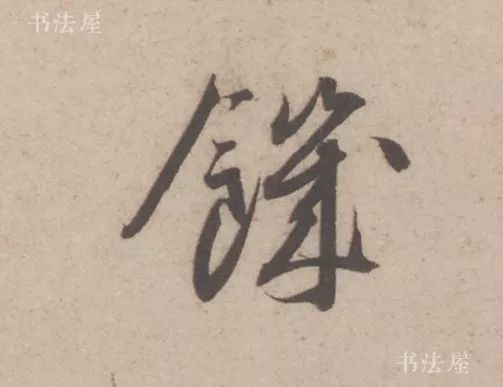 书法屋
饑
书法屋